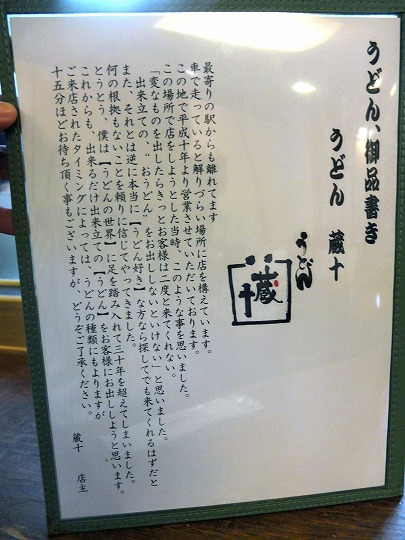 うどん、御品書き
うどん 蔵十
うどん
蔵十
最寄りの駅からも離れてます
車で走っていると解りづらい場所に店を構えています。
この地で平成十年より営業させていただいております。
この場所で店をしようとした当時、このような事を思いました。
「変なものを出したらきっとお客様は二度と来てくれない。
出来立ての、“おうどん”をお出ししないといけない」と思いました。
また、それとは逆に本当に【うどん好き】な方なら探してでも来てくれるはずだと
何の根拠もないことを頼りに信じてやってきました。
とうとう、僕は【うどんの世界】に足を踏み入れて三十年を超えてしまいました。
これからも、出来るだけ出来立ての【うどん】をお客様にお出ししようと思います。
ご来店されたタイミングによっては、うどんの種類にもよりますが
十五分ほどお待ち頂く事もございますが、どうぞご了承ください。
蔵十 店主